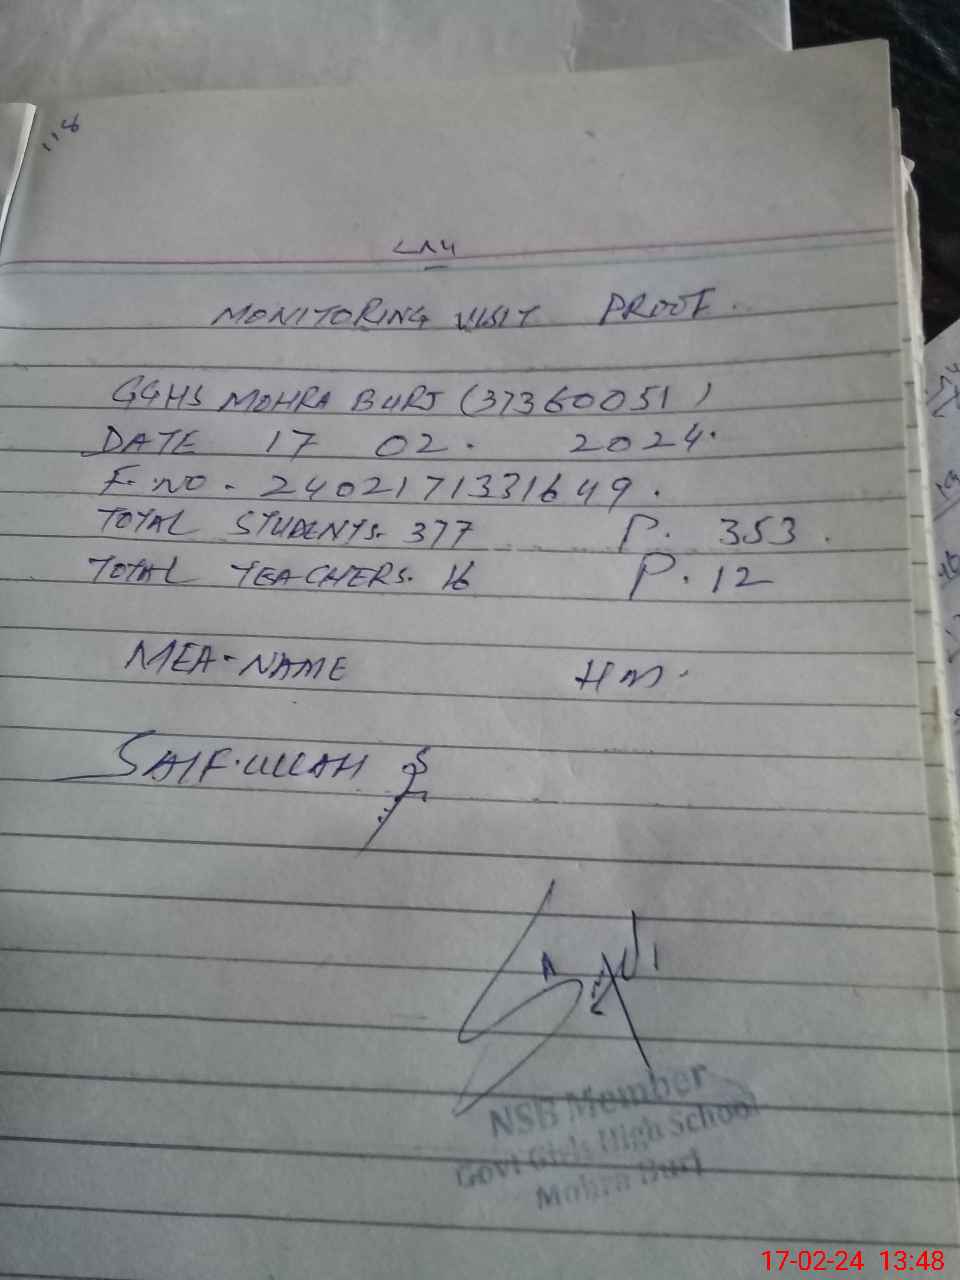 118
MONITORING VISIT PROOF.
GGHS MOHRA BURJ (37360051)
DATE 17 02. 2024.
F.NO - 2402171331649.
TOTAL STUDENTS. 377 P. 353.
TOTAL TEACHERS. 16 P. 12
MEA-NAME HM.
SAIF.ULLAH
NSB Member
Govt Girls High School
Mohra Burj
17-02-24 13:48